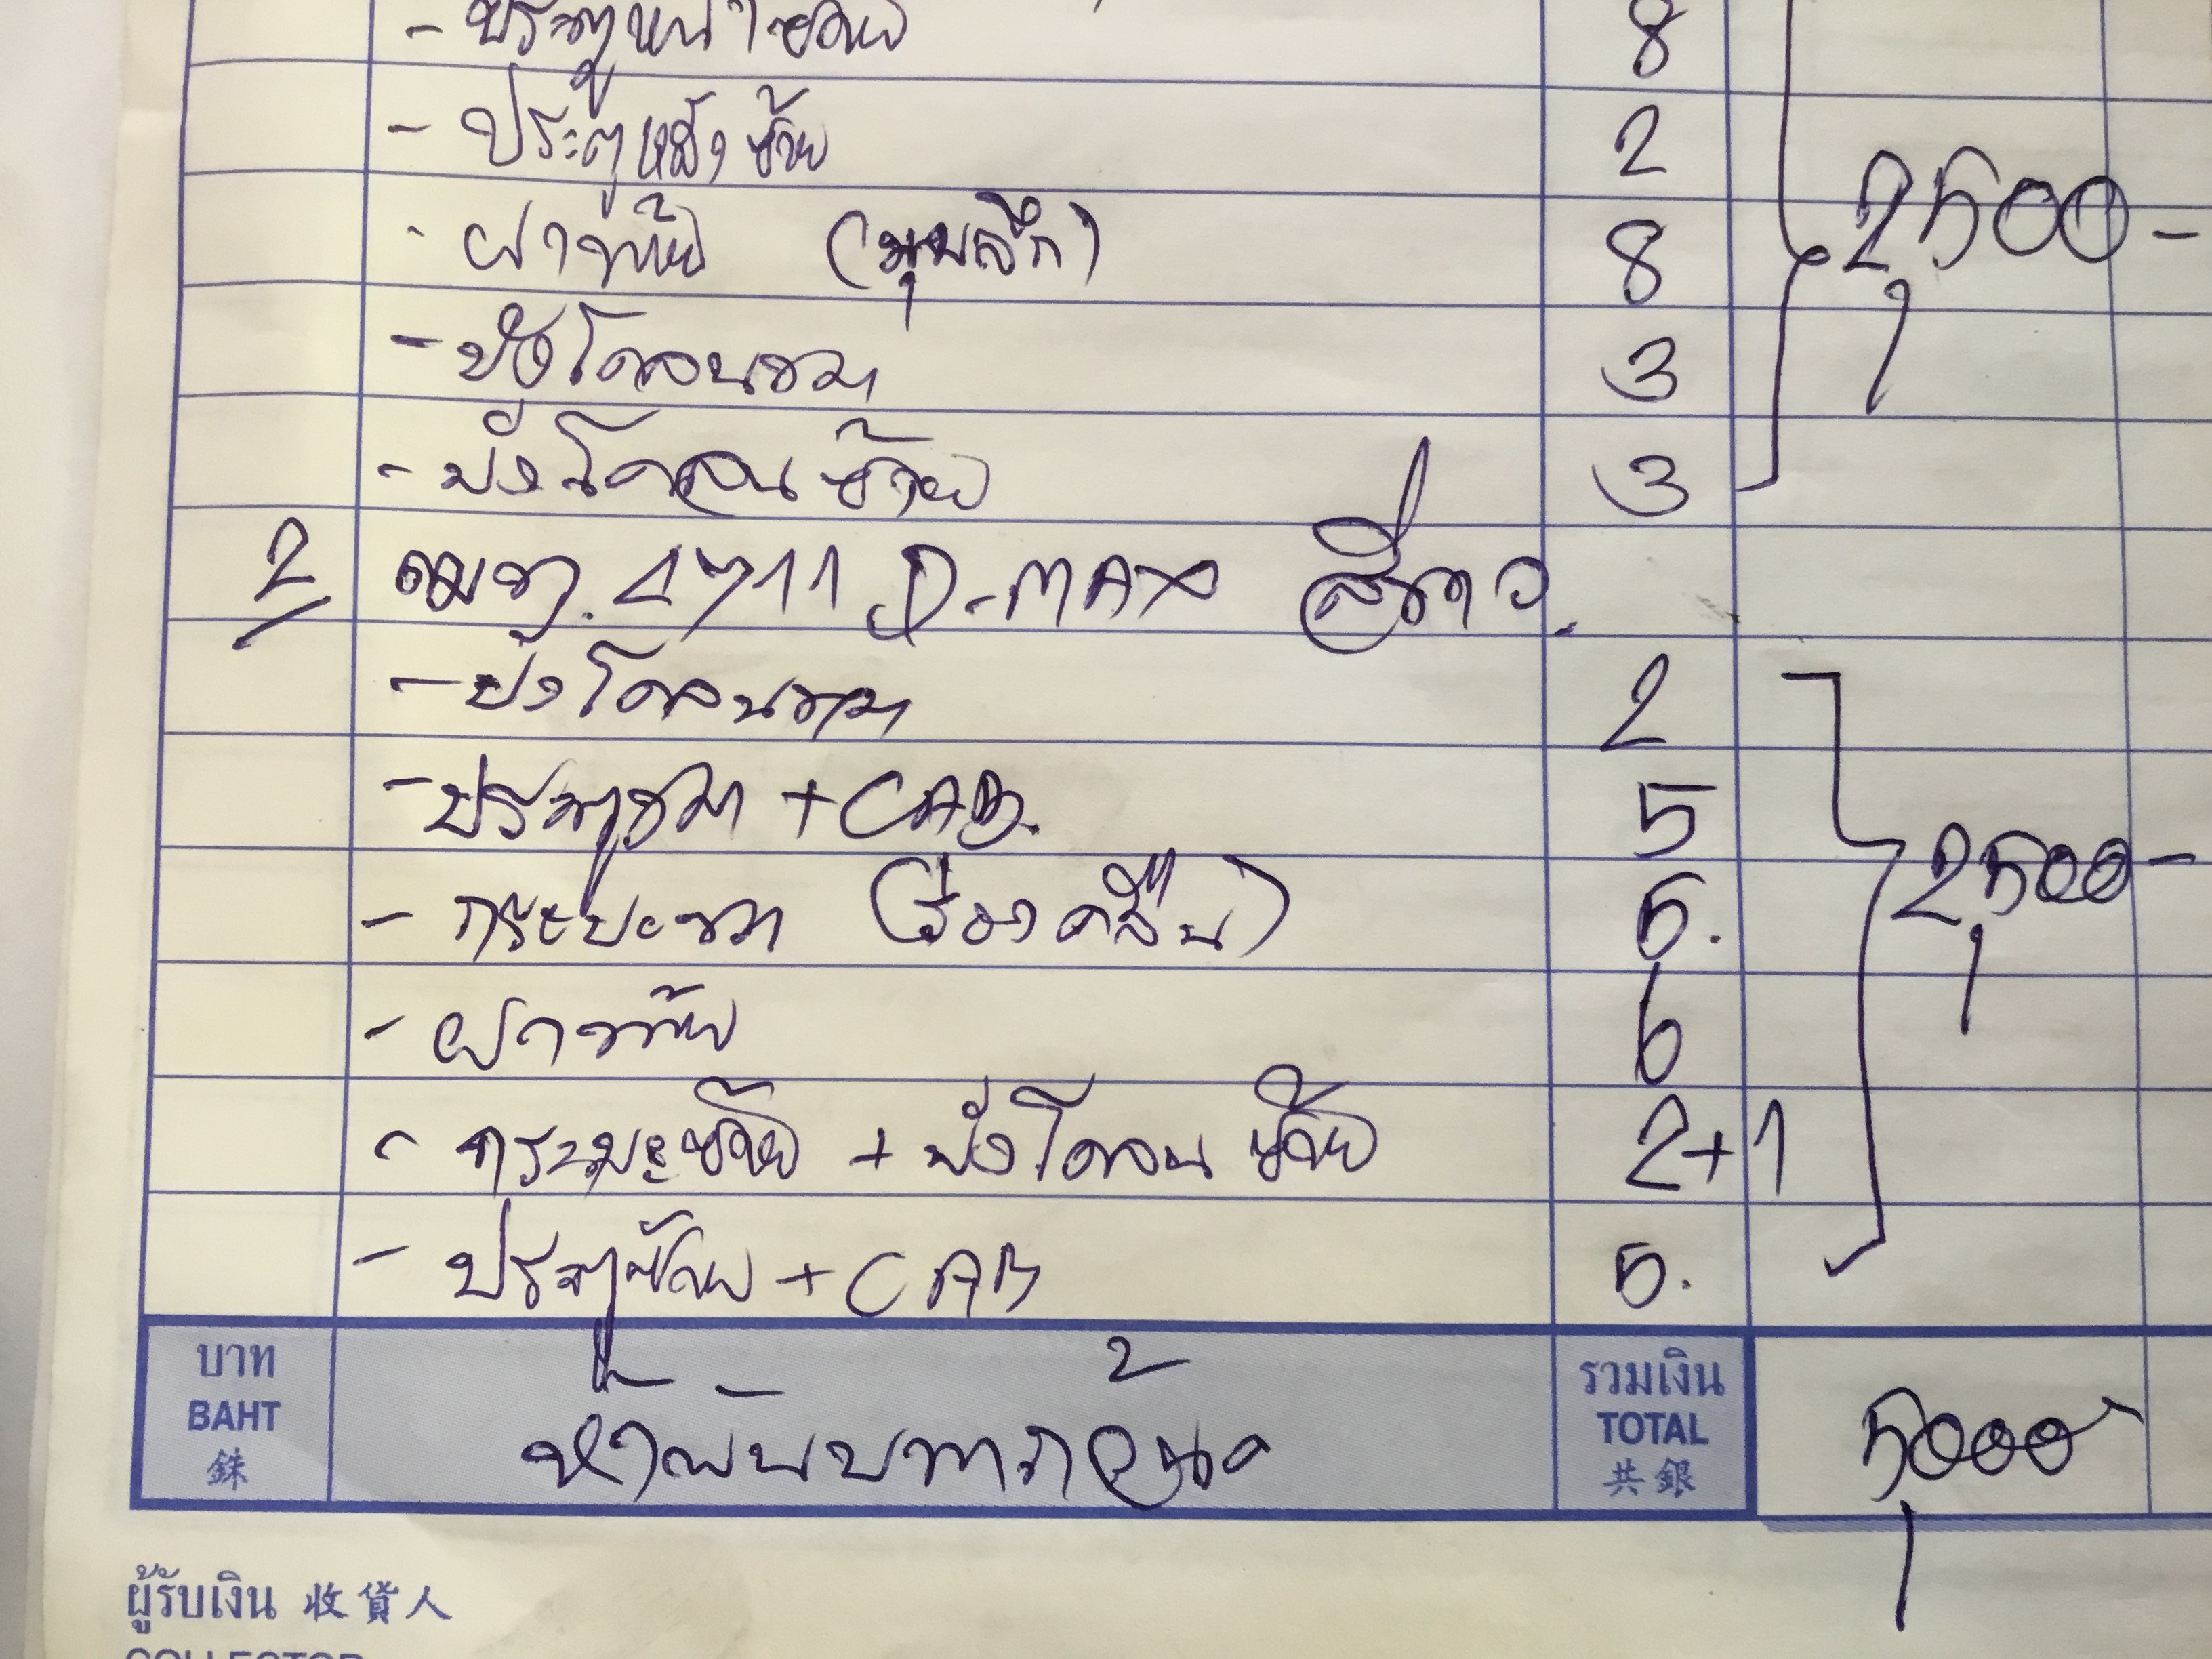 - ประตูหน้าซ้าย 8
- ประตูหลังซ้าย 2
- ฝาท้าย (มุมลึก) 8
- บังโคลนขวา 3
- บังโคลนซ้าย 3
2500-
2 4711 D-MAX สีขาว.
- บังโคลนขวา 2
- ประตูขวา + CAB. 5
- กระบะขวา (ร่องคลื่น) 5.
2,500-
- ฝาท้าย 6
- กระบะซ้าย + บังโคลนซ้าย 2+1
- ประตูซ้าย + CAB 5.
บาท
BAHT
銖
ห้าพันบาทถ้วน
รวมเงิน
TOTAL
共銀
5000
ผู้รับเงิน 收貨人
COLLECTOR